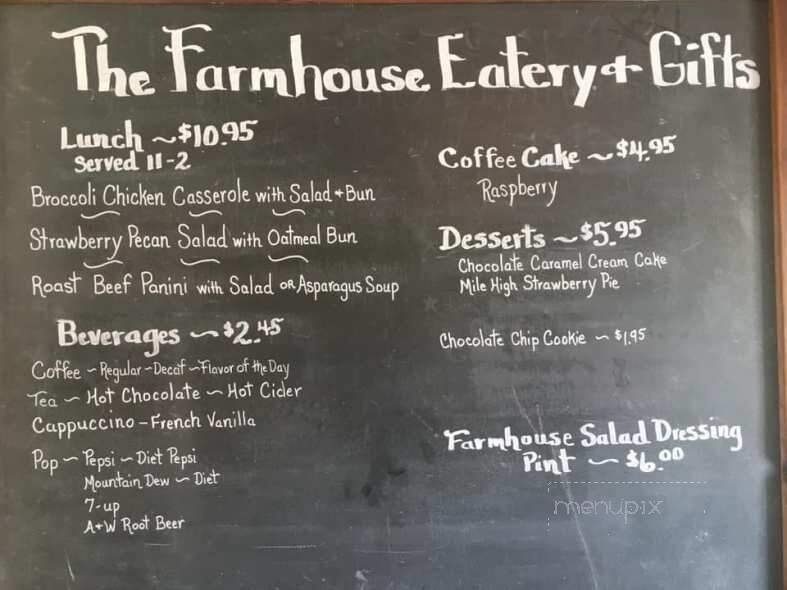 The Farmhouse Eatery + Gifts
Lunch ~ $10.95
Served 11-2
Broccoli Chicken Casserole with Salad + Bun
Strawberry Pecan Salad with Oatmeal Bun
Roast Beef Panini with Salad OR Asparagus Soup
Beverages ~ $2.45
Coffee ~ Regular ~ Decaf ~ Flavor of the Day
Tea ~ Hot Chocolate ~ Hot Cider
Cappuccino - French Vanilla
Pop ~ Pepsi ~ Diet Pepsi
Mountain Dew ~ Diet
7-up
A+W Root Beer
Coffee Cake ~ $4.95
Raspberry
Desserts ~ $5.95
Chocolate Caramel Cream Cake
Mile High Strawberry Pie
Chocolate Chip Cookie ~ $1.95
Farmhouse Salad Dressing
Pint ~ $6.00
menupix